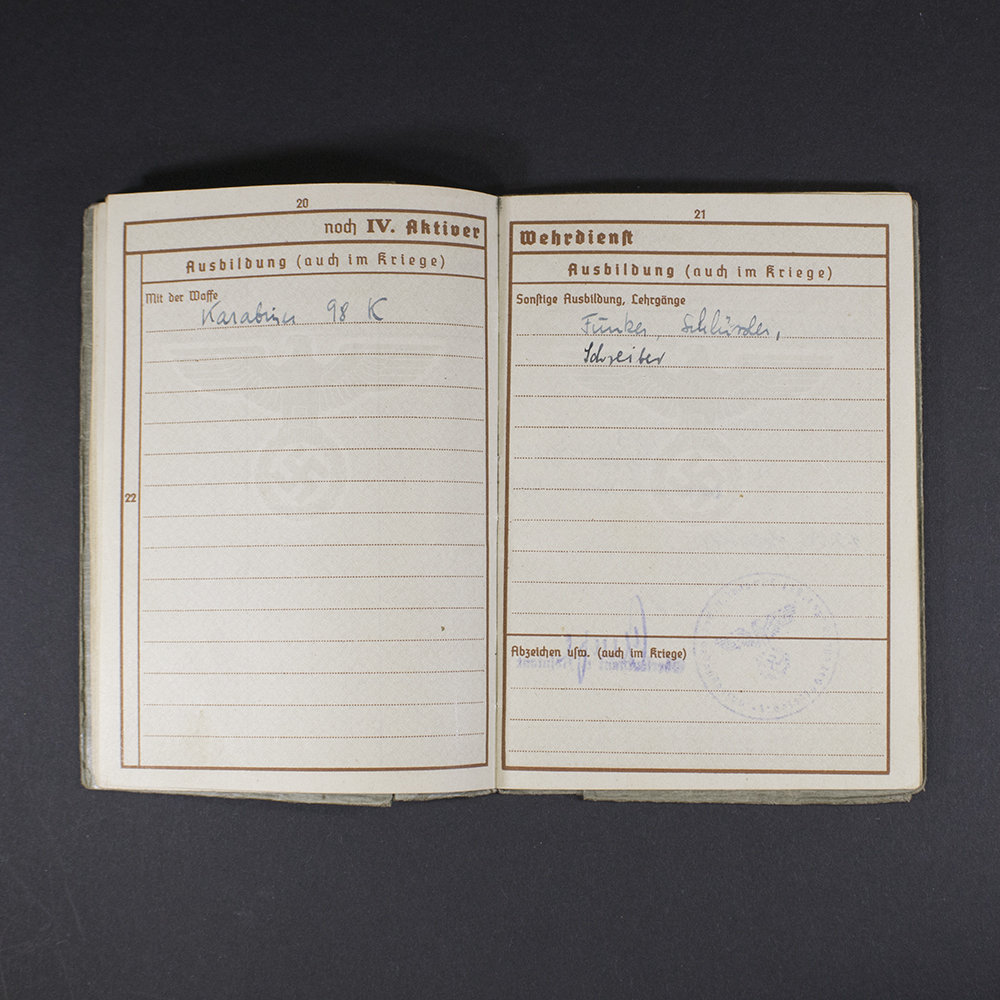 20
noch IV. Aktiver
Ausbildung (auch im Kriege)
Mit der Waffe
Karabiner 98 K
22
21
Wehrdienst
Ausbildung (auch im Kriege)
Sonstige Ausbildung, Lehrgänge
Funker,
Schreiber
Abzeichen usw. (auch im Kriege)